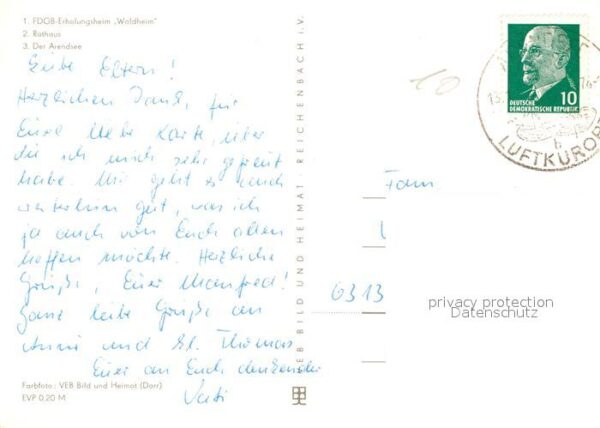 1. FDGB-Erholungsheim „Waldheim"
2. Rathaus
3. Der Arendsee
Liebe Eltern!
Herzlichen Dank, für
Eure liebe Karte, über
die ich mich sehr gefreut
habe. Mir geht es auch
weiterhin gut, was ich
ja auch von Euch allen
hoffen möchte. Herzliche
Grüße, Euer Manfred!
Ganz liebe Grüße an
Anni und kl. Thomas
Euer an Euch denkender
Vati
Farbfoto: VEB Bild und Heimat (Darr)
EVP 0,20 M
VEB BILD UND HEIMAT REICHENBACH i.V.
10
DEUTSCHE
DEMOKRATISCHE REPUBLIK
10
LUFTKURORT
Fam
6313
privacy protection
Datenschutz